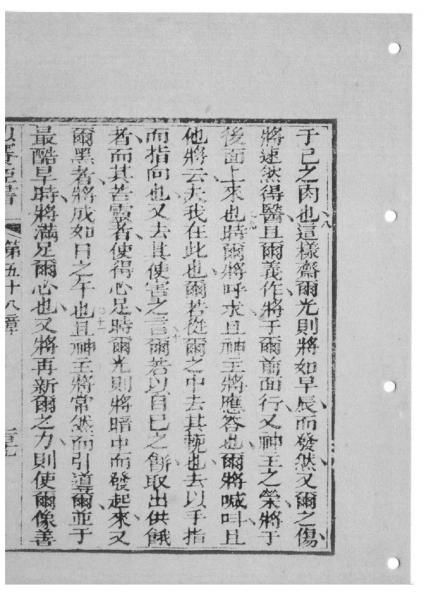 于己之肉也這樣齋爾光則將如早辰而發然又爾之傷
將速然得醫且爾義作將于爾前面行又神主之榮將于
後面上來也時爾將呼求且神主將應答也爾將喊叫且
他將云夫我在此也爾若從爾之中去其軛也去以手指
而指向也又去其使害之言爾若以自己之餅取出供餓
者而其苦靈者使得心足時爾光則將暗中而發起來又
爾黑者將成如日之午也且神主將常然而引導爾並于
最酷旱時將滿足爾心也又將再新爾之力則使爾像善
第五十八章